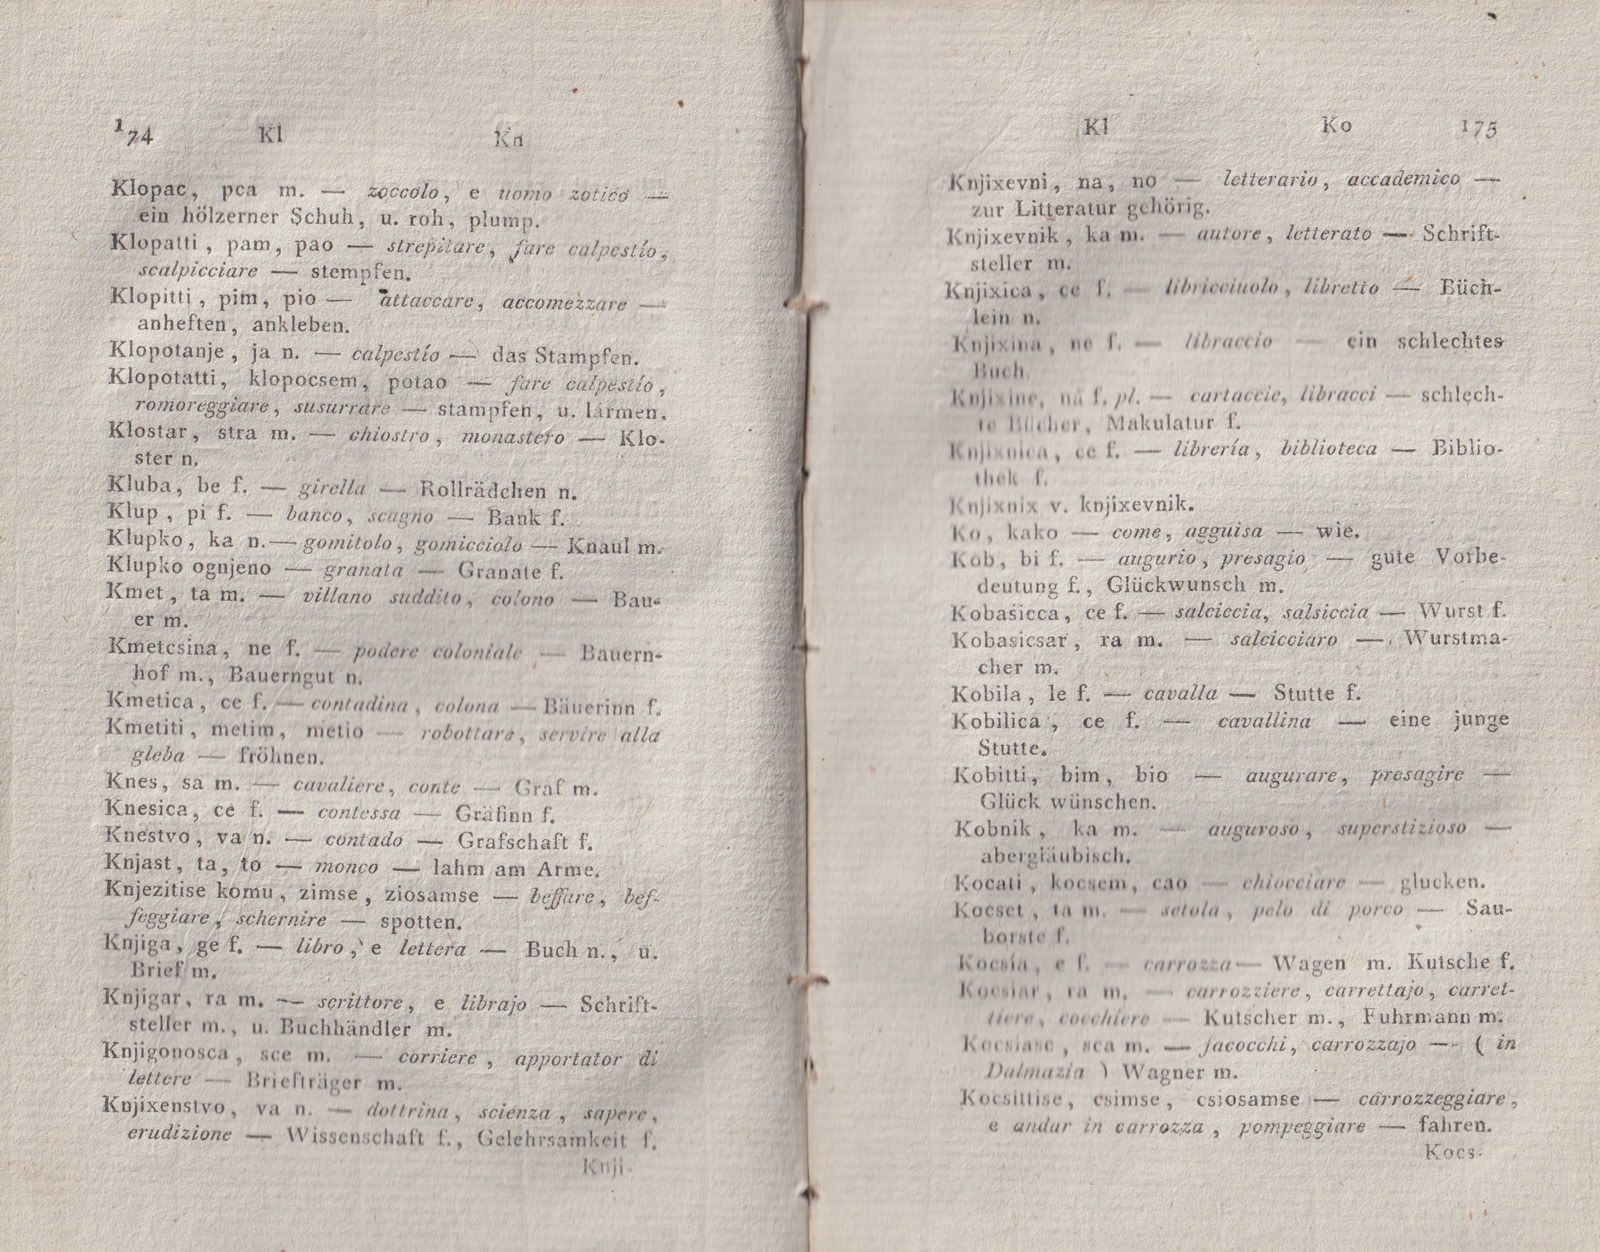 174 Kl Kn
Klopac, pca m. — zoccolo, e uomo zotico —
ein hölzerner Schuh, u. roh, plump.
Klopatti, pam, pao — strepitare, fare calpestío,
scalpicciare — stempfen.
Klopitti, pim, pio — attaccare, accomezzare —
anheften, ankleben.
Klopotanje, ja n. — calpestío — das Stampfen.
Klopotatti, klopocsem, potao — fare calpestío,
romoreggiare, susurrare — stampfen, u. lärmen.
Klostar, stra m. — chiostro, monastero — Klo-
ster n.
Kluba, be f. — girella — Rollrädchen n.
Klup, pi f. — banco, scagno — Bank f.
Klupko, ka n. — gomitolo, gomicciolo — Knaul m.
Klupko ognjeno — granata — Granate f.
Kmet, ta m. — villano suddito, colono — Bau-
er m.
Kmetcsina, ne f. — podere coloniale — Bauern-
hof m., Bauerngut n.
Kmetica, ce f. — contadina, colona — Bäuerinn f.
Kmetiti, metim, metio — robottare, servire alla
gleba — fröhnen.
Knes, sa m. — cavaliere, conte — Graf m.
Knesica, ce f. — contessa — Gräfinn f.
Knestvo, va n. — contado — Grafschaft f.
Knjast, ta, to — monco — lahm am Arme.
Knjezitise komu, zimse, ziosamse — beffare, bef-
feggiare, schernire — spotten.
Knjiga, ge f. — libro, e lettera — Buch n., u.
Brief m.
Knjigar, ra m. — scrittore, e librajo — Schrift-
steller m., u. Buchhändler m.
Knjigonosca, sce m. — corriere, apportator di
lettere — Briefträger m.
Knjixenstvo, va n. — dottrina, scienza, sapere,
erudizione — Wissenschaft f., Gelehrsamkeit f.
Knji-
Kl Ko 175
Knjixevni, na, no — letterario, accademico —
zur Litteratur gehörig.
Knjixevnik, ka m. — autore, letterato — Schrift-
steller m.
Knjixica, ce f. — libricciuolo, libretto — Büch-
lein n.
Knjixina, ne f. — libraccio — ein schlechtes
Buch.
Knjixine, na f. pl. — cartaccie, libracci — schlech-
te Bücher, Makulatur f.
Knjixnica, ce f. — librería, biblioteca — Biblio-
thek f.
Knjixnix v. knjixevnik.
Ko, kako — come, agguisa — wie.
Kob, bi f. — augurio, presagio — gute Vorbe-
deutung f., Glückwunsch m.
Kobasicca, ce f. — salciccia, salsiccia — Wurst f.
Kobasicsar, ra m. — salcicciaro — Wurstma-
cher m.
Kobila, le f. — cavalla — Stutte f.
Kobilica, ce f. — cavallina — eine junge
Stutte.
Kobitti, bim, bio — augurare, presagire —
Glück wünschen.
Kobnik, ka m. — auguroso, superstizioso —
abergläubisch.
Kocati, kocsem, cao — chiocciare — glucken.
Kocset, ta m. — setola, pelo di porco — Sau-
borste f.
Kocsia, e f. — carrozza — Wagen m. Kutsche f.
Kocsiar, ra m. — carrozziere, carrettajo, carret-
tiere, cocchiere — Kutscher m., Fuhrmann m.
Kocsiasc, sca m. — facocchi, carrozzajo — (in
Dalmazia) Wagner m.
Kocsittise, csimse, csiosamse — carrozzeggiare,
e andar in carrozza, pompeggiare — fahren.
Kocs-